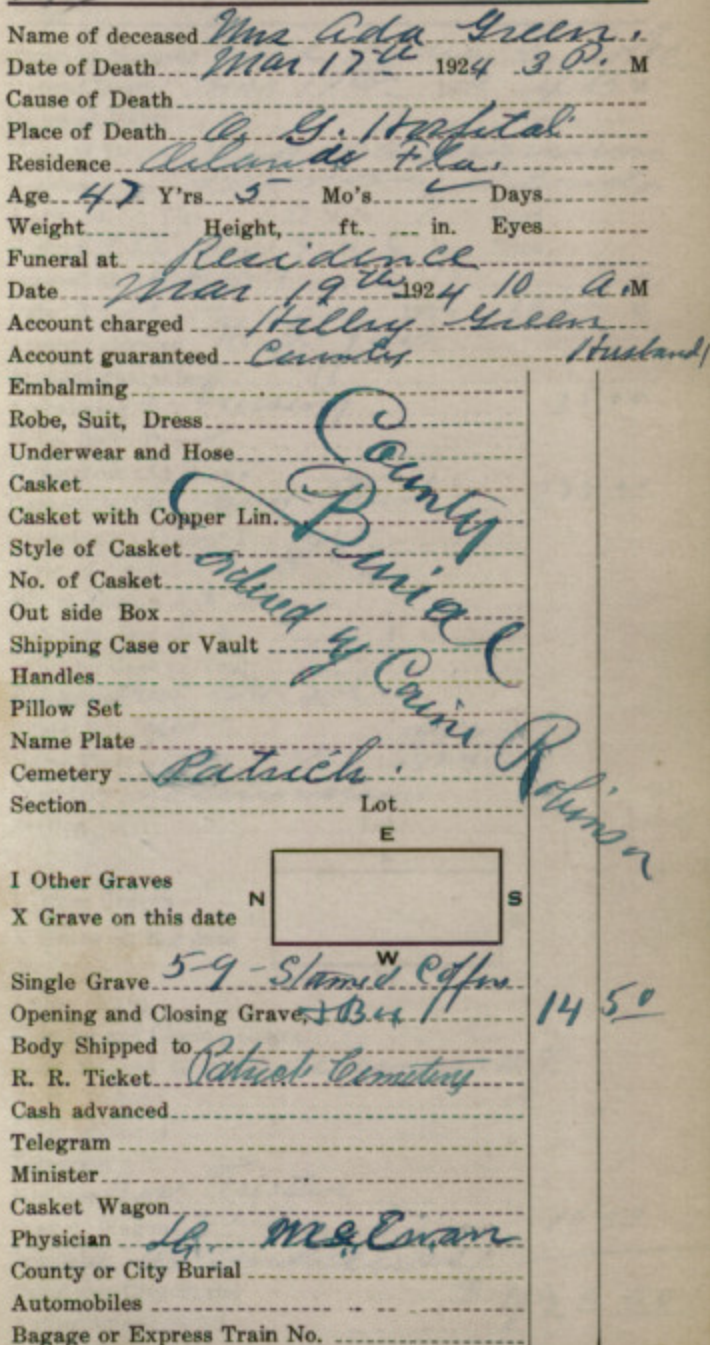 Name of deceased Mrs Ada Green.
Date of Death Mar 17th 1924 3 P. M
Cause of Death
Place of Death O. G. Hospital
Residence Orlando Fla.
Age 47 Y'rs 5 Mo's Days
Weight Height, ft. in. Eyes
Funeral at Residence
Date Mar 19th 1924 10 A.M
Account charged Hilley Green
Account guaranteed County Husband
Embalming
Robe, Suit, Dress
Underwear and Hose
Casket
Casket with Copper Lin.
Style of Casket
No. of Casket
Out side Box
Shipping Case or Vault
Handles
Pillow Set
Name Plate
County
Burial
ordered by Robinson
Cemetery Patrick.
Section Lot
E
I Other Graves
N S
X Grave on this date
W
Single Grave 5-9 - Coffin
Opening and Closing Grave, & Box 14 50
Body Shipped to
R. R. Ticket Patrick Cemetery
Cash advanced
Telegram
Minister
Casket Wagon
Physician Dr. McEwan
County or City Burial
Automobiles
Bagage or Express Train No.